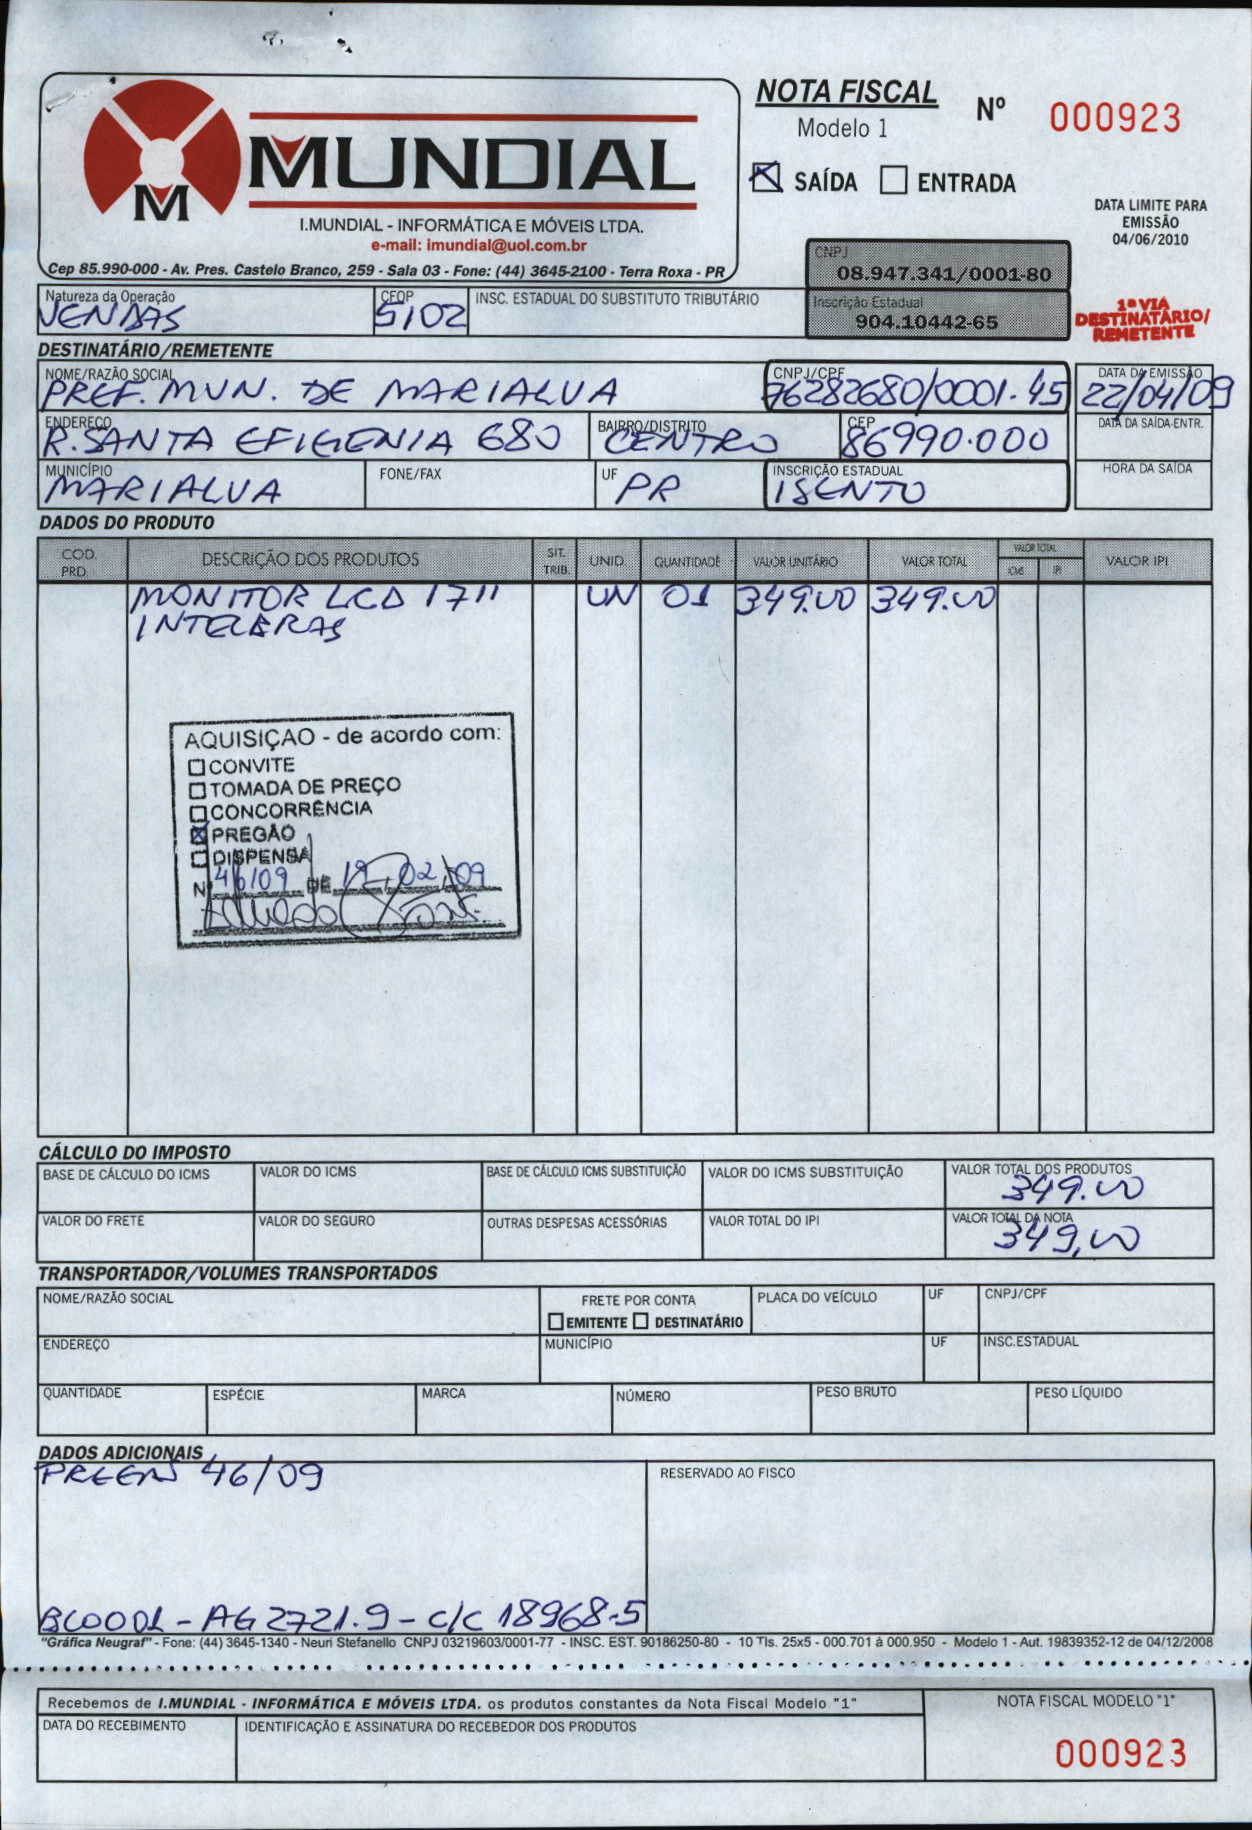 MUNDIAL
M
I.MUNDIAL - INFORMÁTICA E MÓVEIS LTDA.
e-mail: imundial@uol.com.br
Cep 85.990-000 - Av. Pres. Castelo Branco, 259 - Sala 03 - Fone: (44) 3645-2100 - Terra Roxa - PR
NOTA FISCAL Nº 000923
Modelo 1
SAÍDA ENTRADA
DATA LIMITE PARA
EMISSÃO
04/06/2010
CNPJ
08.947.341/0001-80
Inscrição Estadual
904.10442-65
1ª VIA
DESTINATÁRIO/
REMETENTE
Natureza da Operação CFOP INSC. ESTADUAL DO SUBSTITUTO TRIBUTÁRIO
VENDAS 5102
DESTINATÁRIO/REMETENTE
NOME/RAZÃO SOCIAL CNPJ/CPF DATA DA EMISSÃO
PREF. MUN. DE MARIALVA 76282680/0001-45 22/04/09
ENDEREÇO BAIRRO/DISTRITO CEP DATA DA SAÍDA-ENTR.
R. SANTA EFIGENIA 680 CENTRO 86990.000
MUNICÍPIO FONE/FAX UF INSCRIÇÃO ESTADUAL HORA DA SAÍDA
MARIALVA PR ISENTO
DADOS DO PRODUTO
COD. PRD. DESCRIÇÃO DOS PRODUTOS SIT. TRIB. UNID. QUANTIDADE VALOR UNITÁRIO VALOR TOTAL VALOR TOTAL ICMS IPI VALOR IPI
MONITOR LCD 17" UN 01 349.00 349.00
INTELBRAS
AQUISIÇÃO - de acordo com:
CONVITE
TOMADA DE PREÇO
CONCORRÊNCIA
PREGÃO
DISPENSA
Nº 46/09 DE 19/02/09
CÁLCULO DO IMPOSTO
BASE DE CÁLCULO DO ICMS VALOR DO ICMS BASE DE CÁLCULO ICMS SUBSTITUIÇÃO VALOR DO ICMS SUBSTITUIÇÃO VALOR TOTAL DOS PRODUTOS
349.00
VALOR DO FRETE VALOR DO SEGURO OUTRAS DESPESAS ACESSÓRIAS VALOR TOTAL DO IPI VALOR TOTAL DA NOTA
349,00
TRANSPORTADOR/VOLUMES TRANSPORTADOS
NOME/RAZÃO SOCIAL FRETE POR CONTA PLACA DO VEÍCULO UF CNPJ/CPF
EMITENTE DESTINATÁRIO
ENDEREÇO MUNICÍPIO UF INSC.ESTADUAL
QUANTIDADE ESPÉCIE MARCA NÚMERO PESO BRUTO PESO LÍQUIDO
DADOS ADICIONAIS
46/09
RESERVADO AO FISCO
BCO001 - AG 2721.9 - C/C 18968-5
"Gráfica Neugraf" - Fone: (44) 3645-1340 - Neuri Stefanello CNPJ 03219603/0001-77 - INSC. EST. 90186250-80 - 10 Tls. 25x5 - 000.701 à 000.950 - Modelo 1 - Aut. 19839352-12 de 04/12/2008
Recebemos de I.MUNDIAL - INFORMÁTICA E MÓVEIS LTDA. os produtos constantes da Nota Fiscal Modelo "1"
DATA DO RECEBIMENTO IDENTIFICAÇÃO E ASSINATURA DO RECEBEDOR DOS PRODUTOS
NOTA FISCAL MODELO "1"
000923